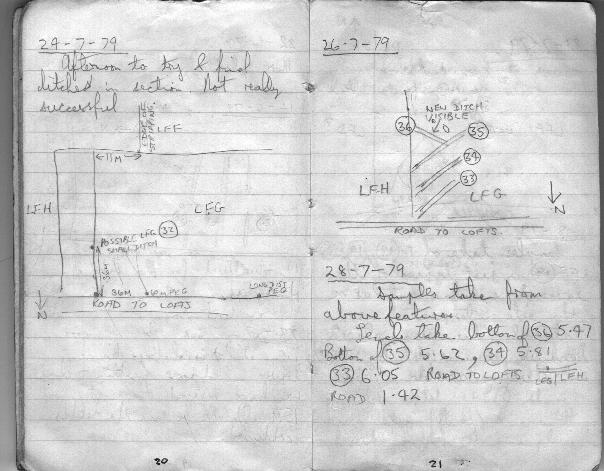 24-7-79
Afternoon to try & find
ditches in section. Not really
successful
EDGE OF
STRIPPING
LFF
11M
LFH
LFG
POSSIBLE LFG 32
SMALL DITCH
36M
6M PEG
LONG DIST
PEG
N
ROAD TO LOFTS
20
26-7-79
NEW DITCH
VISIBLE
36
35
34
33
LFH
LFG
N
ROAD TO LOFTS.
28-7-79
Samples take from
above features.
Levels take bottom of 36 5.47
Bottom of 35 5.62, 34 5.81
33 6.05 ROAD TO LOFTS. LFG/LFH
ROAD 1.42
21